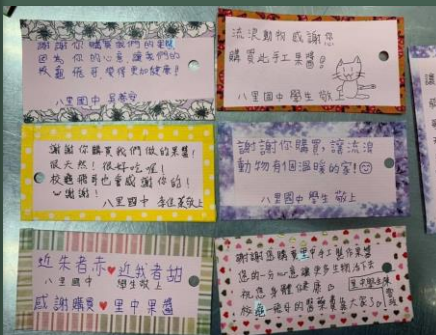 謝謝你購買我們的果醬
因為你的心意讓我們的
校
飛哥變得更加健康!
八里國中
流浪動物感謝您
購買此手工果醬!
八里國中學生敬上
謝謝你購買我們做的果醬!
很天然!很好吃喔!
校飛哥也會感謝你的!
謝謝!
八里國中 敬上
謝謝你購買,讓流浪
動物有個溫暖的家!
八里國中學生 敬上
近朱者赤♥近我者甜
八里國中 學生敬上
感謝購買♥里中果醬
謝謝您購買里中手工製作果醬
您的一份心意讓更多生物活下去
祝您身體健康
里中學生
讓